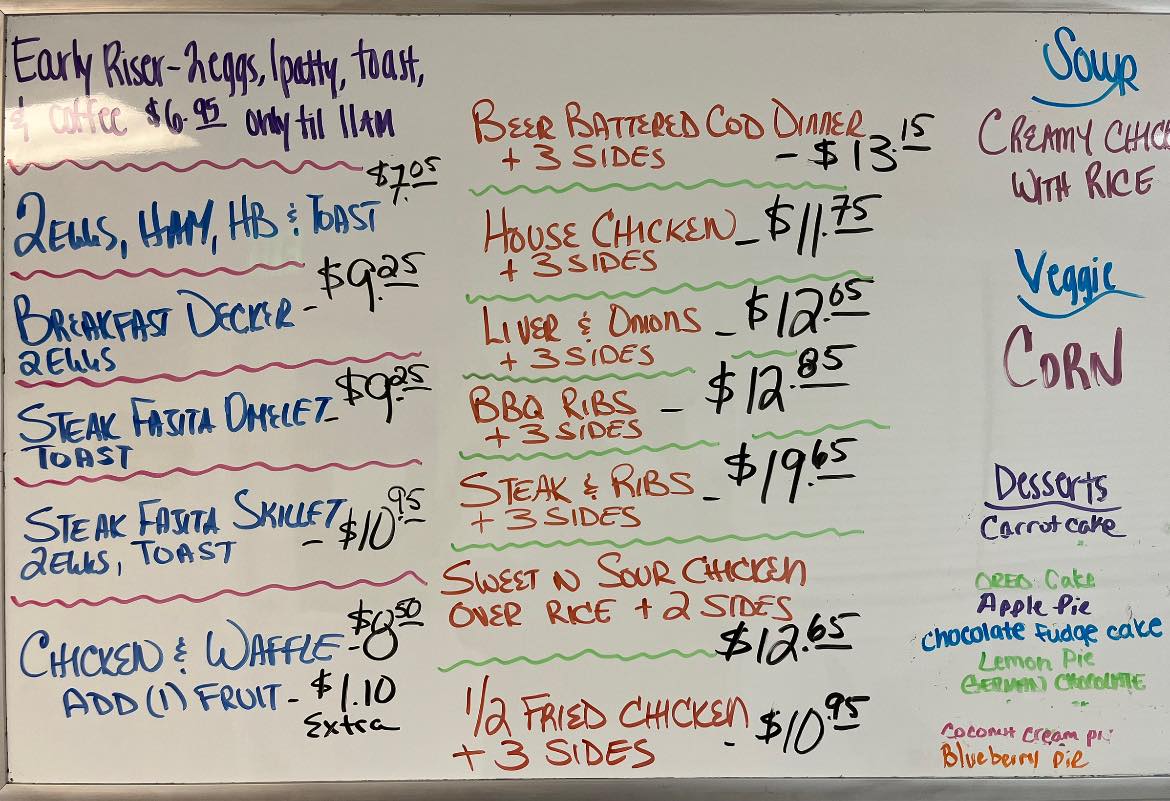 Early Riser - 2 eggs, 1 patty, toast,
& coffee $6.95 only til 11AM
$7.05
2 EGGS, HAM, HB & TOAST
BREAKFAST DECKER - $9.25
2 EGGS
STEAK FAJITA OMELET - $9.25
TOAST
STEAK FAJITA SKILLET
2 EGGS, TOAST - $10.95
CHICKEN & WAFFLE - $8.50
ADD (1) FRUIT - $1.10
Extra
BEER BATTERED COD DINNER
+ 3 SIDES - $13.15
HOUSE CHICKEN - $11.75
+ 3 SIDES
LIVER & ONIONS - $12.65
+ 3 SIDES
BBQ RIBS - $12.85
+ 3 SIDES
STEAK & RIBS - $19.65
+ 3 SIDES
SWEET N SOUR CHICKEN
OVER RICE + 2 SIDES
$12.65
1/2 FRIED CHICKEN
+ 3 SIDES - $10.95
Soup
CREAMY CHICK
WITH RICE
Veggie
CORN
Desserts
Carrot cake
OREO Cake
Apple Pie
Chocolate Fudge cake
Lemon Pie
GERMAN CHOCOLATE
Coconut Cream pi
Blueberry pie